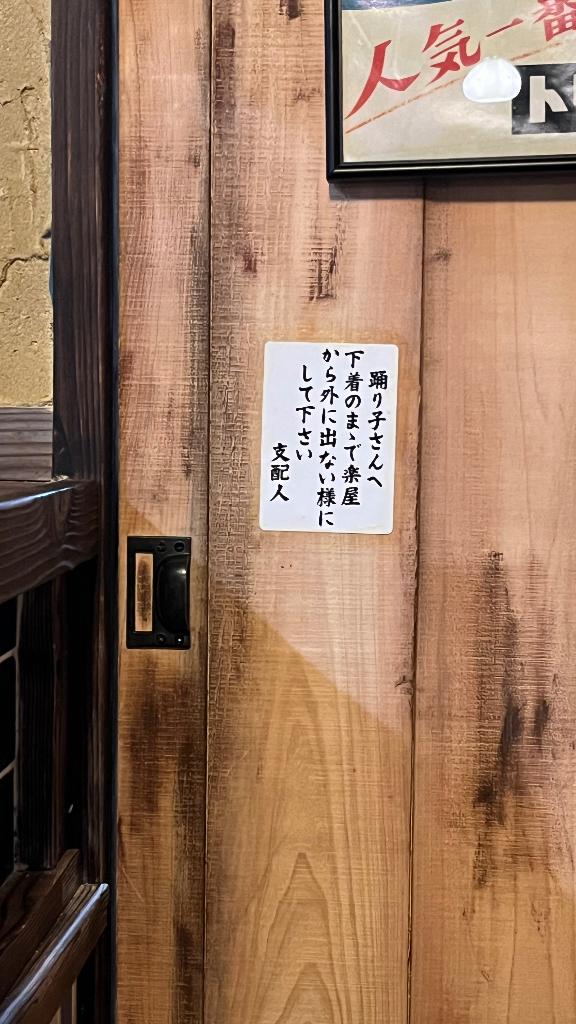 人気一番
踊り子さんへ
下着のまゝで楽屋
から外に出ない様に
して下さい
支配人